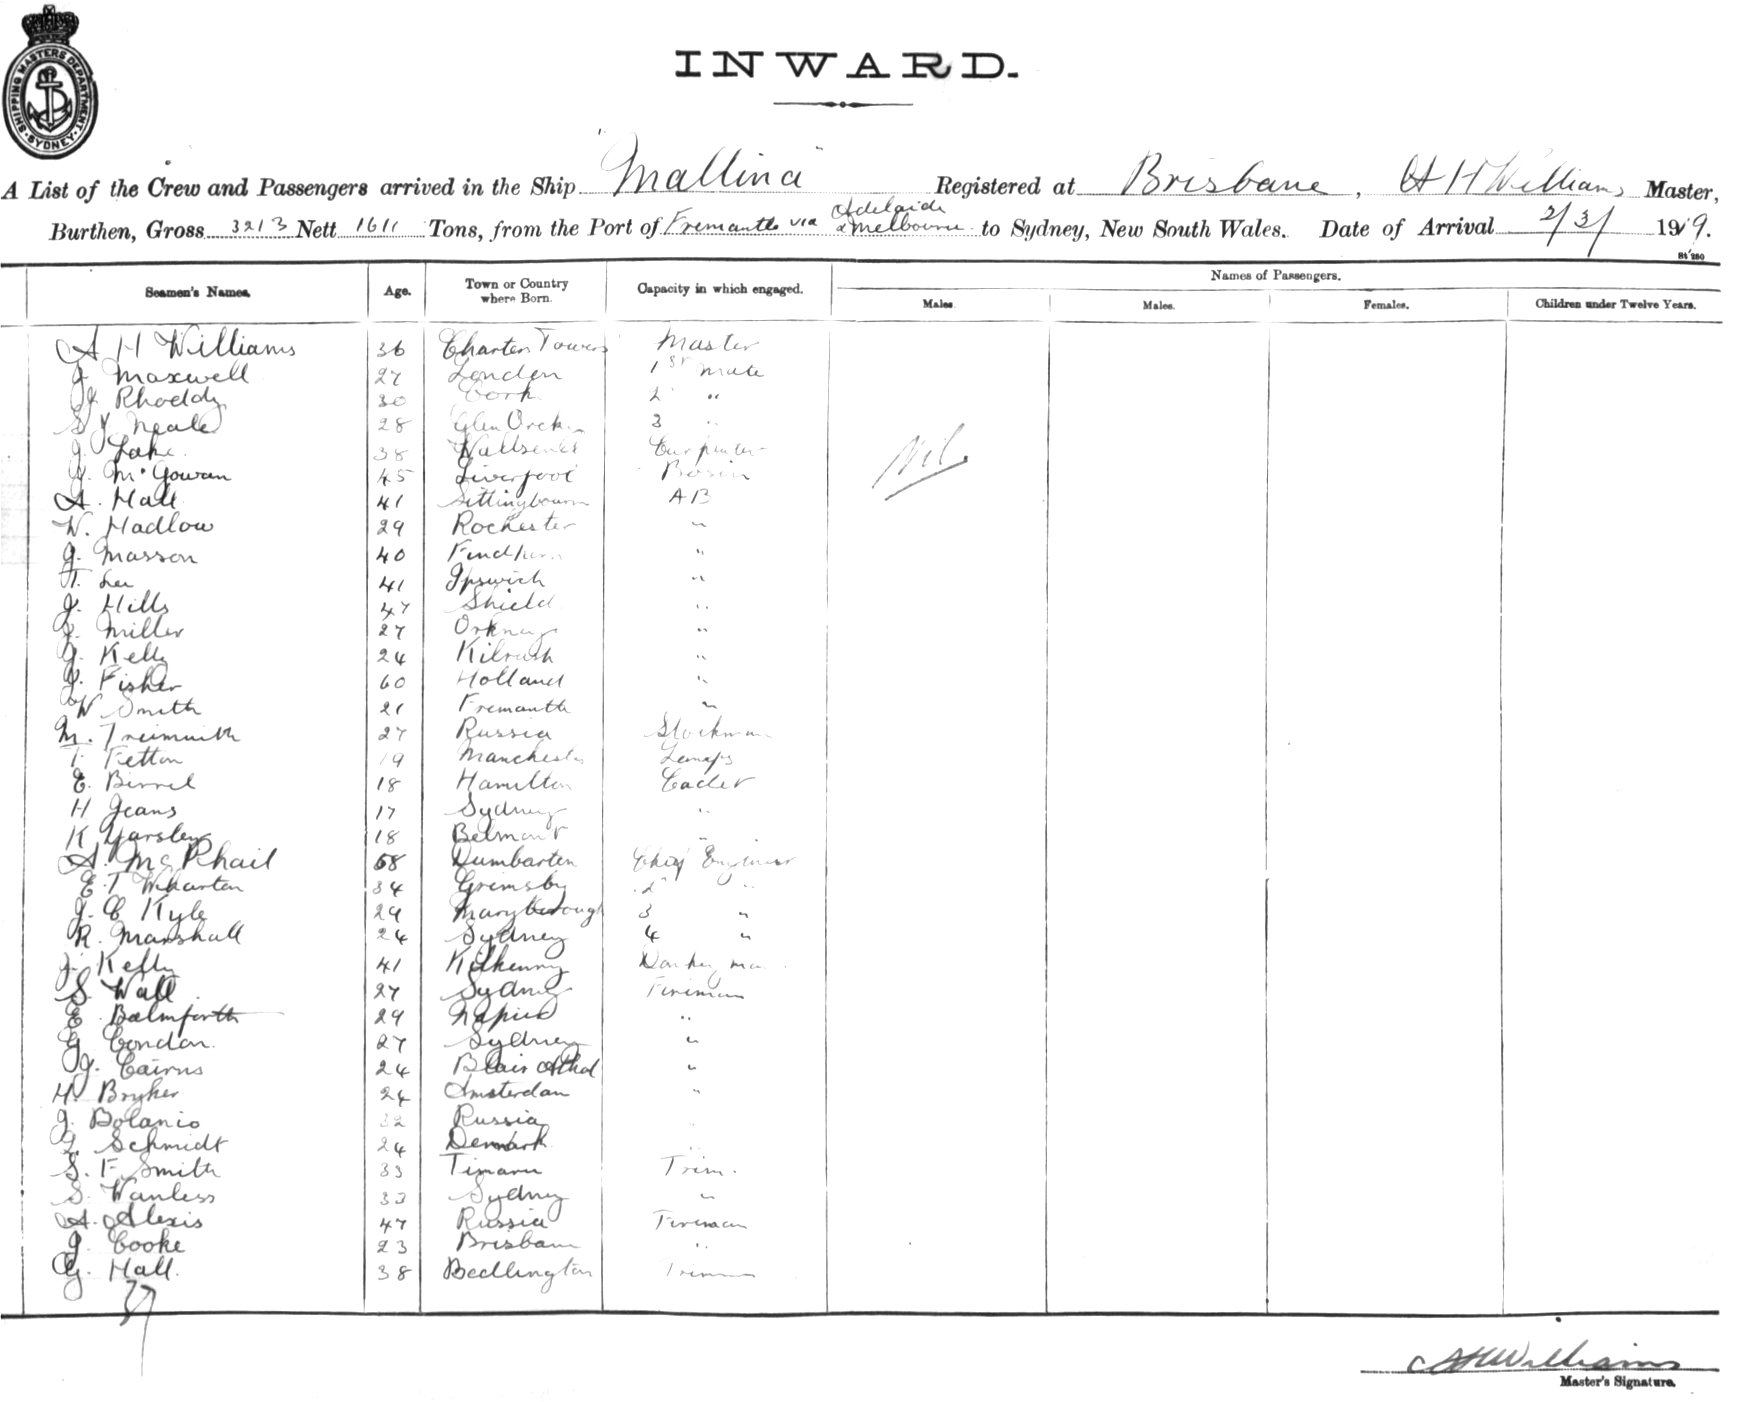 SHIPPING MASTERS DEPARTMENT · SYDNEY ·
INWARD.
A List of the Crew and Passengers arrived in the Ship "Mallina" Registered at Brisbane, A H Williams Master,
Burthen, Gross 3213 Nett 1611 Tons, from the Port of Fremantle via Adelaide & Melbourne to Sydney, New South Wales. Date of Arrival 2/3/ 1919.
St 280
Seamen's Names. Age. Town or Country where Born. Capacity in which engaged. Names of Passengers.
Males. Males. Females. Children under Twelve Years.
A H Williams 36 Charters Towers Master
J Maxwell 27 London 1st Mate
J Rhoddy 30 Cork 2 "
S Y Neale 28 Glen 3 "
J. Lake 38 Carpenter
J. McGowan 45 Liverpool Bosun
Nil.
A. Hall 41 Sittingbourn AB
W. Hadlow 29 Rochester "
J. Masson 40 Findhorn "
T. Lee 41 Ipswich "
J. Hills 47 Shield "
J. Miller 27 Orkney "
J. Kelly 24 Kilrush "
J. Fisher 60 Holland "
W Smith 21 Fremantle "
M. 27 Russia Stockman
T. Fetton 19 Manchester Lamps
E. Birrel 18 Hamilton Cadet
H Jeans 17 Sydney "
K Yarsley 18 Belmont "
A. McPhail 68 Dumbarten Chief Engineer
E. T Wharton 34 Grimsby 2 "
J. C Kyle 29 Maryborough 3 "
R. Marshall 24 Sydney 4 "
J. Kelly 41 Kilkenny Donkeyman
S. Wall 27 Sydney Fireman
E. Balmforth 29 Napier "
G Condon. 27 Sydney "
J. Cairns 24 Blair Athol "
H. Bryker 24 Amsterdam "
J. Bolanio 32 Russia "
L. Schmidt 24 Denmark "
S. F Smith 33 Timaru Trim.
S. Wanless 33 Sydney "
A. Alexis 47 Russia Fireman
J. Cooke 23 Brisbane "
G. Hall. 38 Bedlington Trimmer
37
A H Williams
Master's Signature.